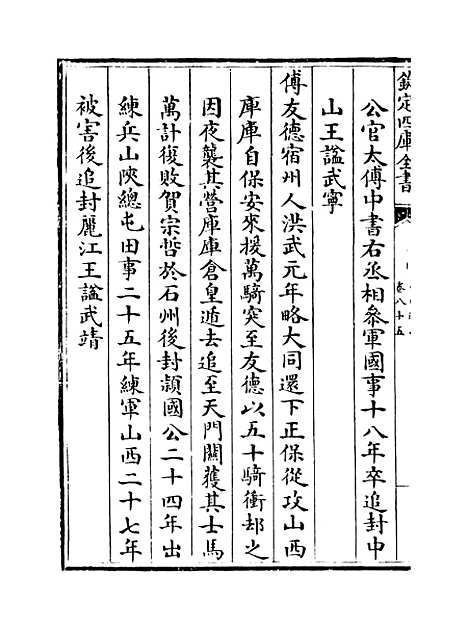 欽定四庫全書
卷八十五
公官太傅中書右丞相叅軍國事十八年卒追封中
山王諡武寧
傅友德宿州人洪武元年略大同還下正保從攻山西
庫庫自保安來援萬騎突至友德以五十騎衝却之
因夜襲其營庫庫倉皇遁去追至天門關獲其士馬
萬計復敗賀宗哲於石州後封潁國公二十四年出
練兵山陝總屯田事二十五年練軍山西二十七年
被害後追封麗江王諡武靖